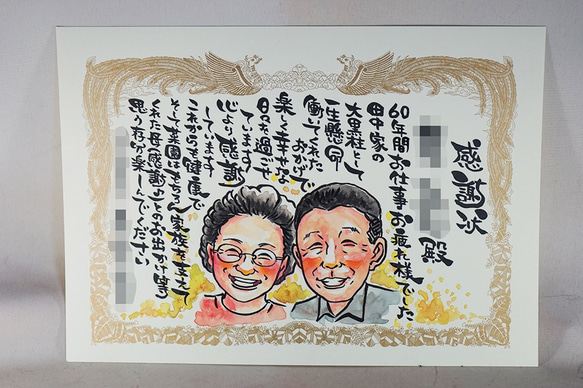 感謝状
殿
60年間 お仕事 お疲れ様でした
田中家の
大黒柱として
一生懸命
働いてくれた
おかげで
楽しく幸せな
日々を過ごせ
ています
心より感謝
しています
これからも健康で
そして菜園はもちろん家族を支えて
くれた母(感謝)とのお出かけ等
思う存分楽しんでください